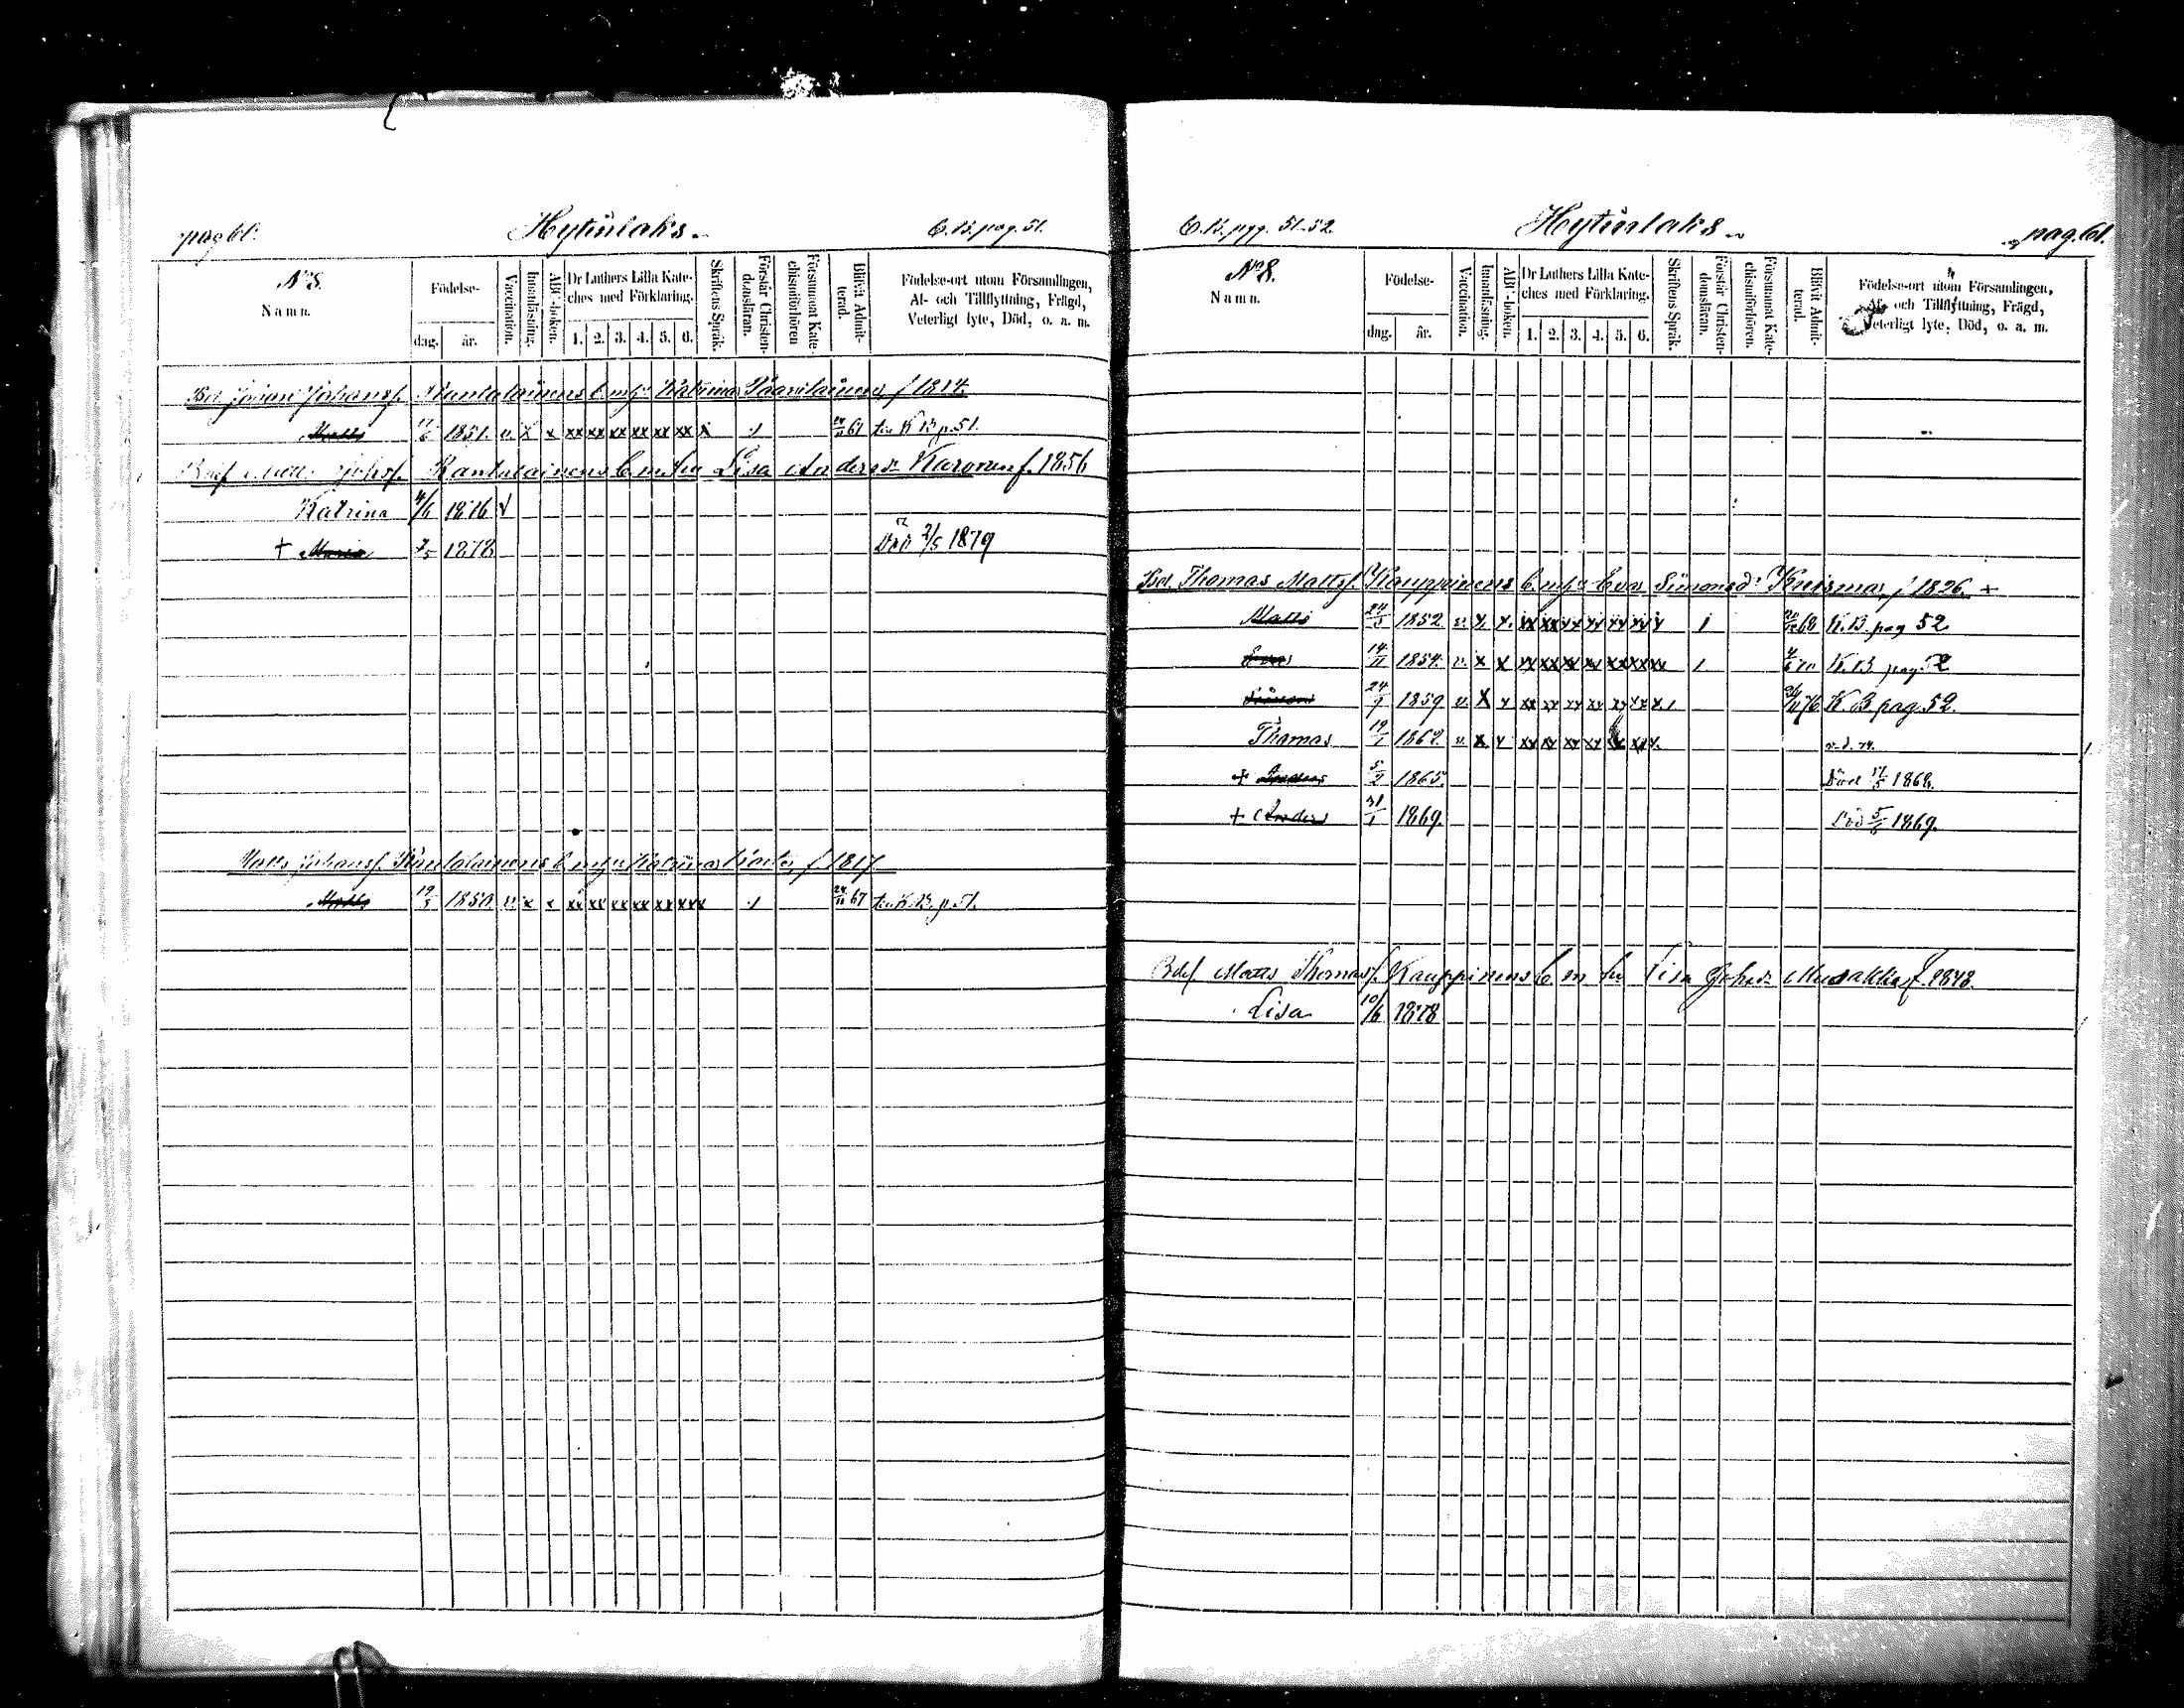 pag 61.
Hytinlaks.
C.B. pag. 51.
N:o 8.
Namn.
Födelse-
dag.
år.
Vaccination.
Innanläsning.
ABC-boken.
Dr Luthers Lilla Kate-
ches med Förklaring.
1. 2. 3. 4. 5. 6.
Skriftens Språk.
Förstår Christen-
domsläran.
Försummat Kate-
chismiförhören
Blifvit Admit-
terad.
Födelse-ort utom Församlingen,
Af- och Tillflyttning, Frägd,
Veterligt lyte, Död, o. a. m.
Bd. Johansf. Kantalainens b. m. h. Katrina Paavilainen f 1814.
Matts 1851. v. x x xx xx xx xx xx xx x 1 67 K B p. 51.
Johsf. Kantalainens b. m. hu Lisa Andersdr Karonen f. 1856
Katrina 4/6 1876 v
+ Maria 7/5 1878 Död 2/5 1879
Matts Johansf. Kantalainens b. m. h. Katrina f. 1817.
Matts 19/5 1850 v. x x xx xx xx xx xx xxx 1 24/11 67 K.B. p. 51.
C.B. pgg. 51-52.
Hytinlaks
pag. 61.
N:o 8.
Namn.
Födelse-
dag.
år.
Vaccination.
Innanläsning.
ABC-boken.
Dr Luthers Lilla Kate-
ches med Förklaring.
1. 2. 3. 4. 5. 6.
Skriftens Språk.
Förstår Christen-
domsläran.
Försummat Kate-
chismiförhören.
Blifvit Admit-
terad.
Födelse-ort utom Församlingen,
Af- och Tillflyttning, Frägd,
Veterligt lyte, Död, o. a. m.
Bd. Thomas Mattsf. Kauppinens b. m. h. Eva Simonsdr Kuisma, f 1826. +
Matts 24/5 1852 v. x. x. xx xx xx xx xx xx x 1 68 K.B. pag 52
Eva 14/11 1854. v. x x xx xx xx xx xx xx xx 1 K.B. pag. 52
Simon 24/9 1859 v. x x xx xx xx xx xx xx x. 76 K.B. pag. 52.
Thomas 1862. v. x x xx xx xx xx xx xx
+ Anders 5/2 1865. Död 1868.
+ Anders 31/1 1869. Död 5/6 1869.
Bdsf. Matts Thomasf. Kauppinens b. m. hu Lisa Johsdr f. 1848.
Lisa 10/6 1878